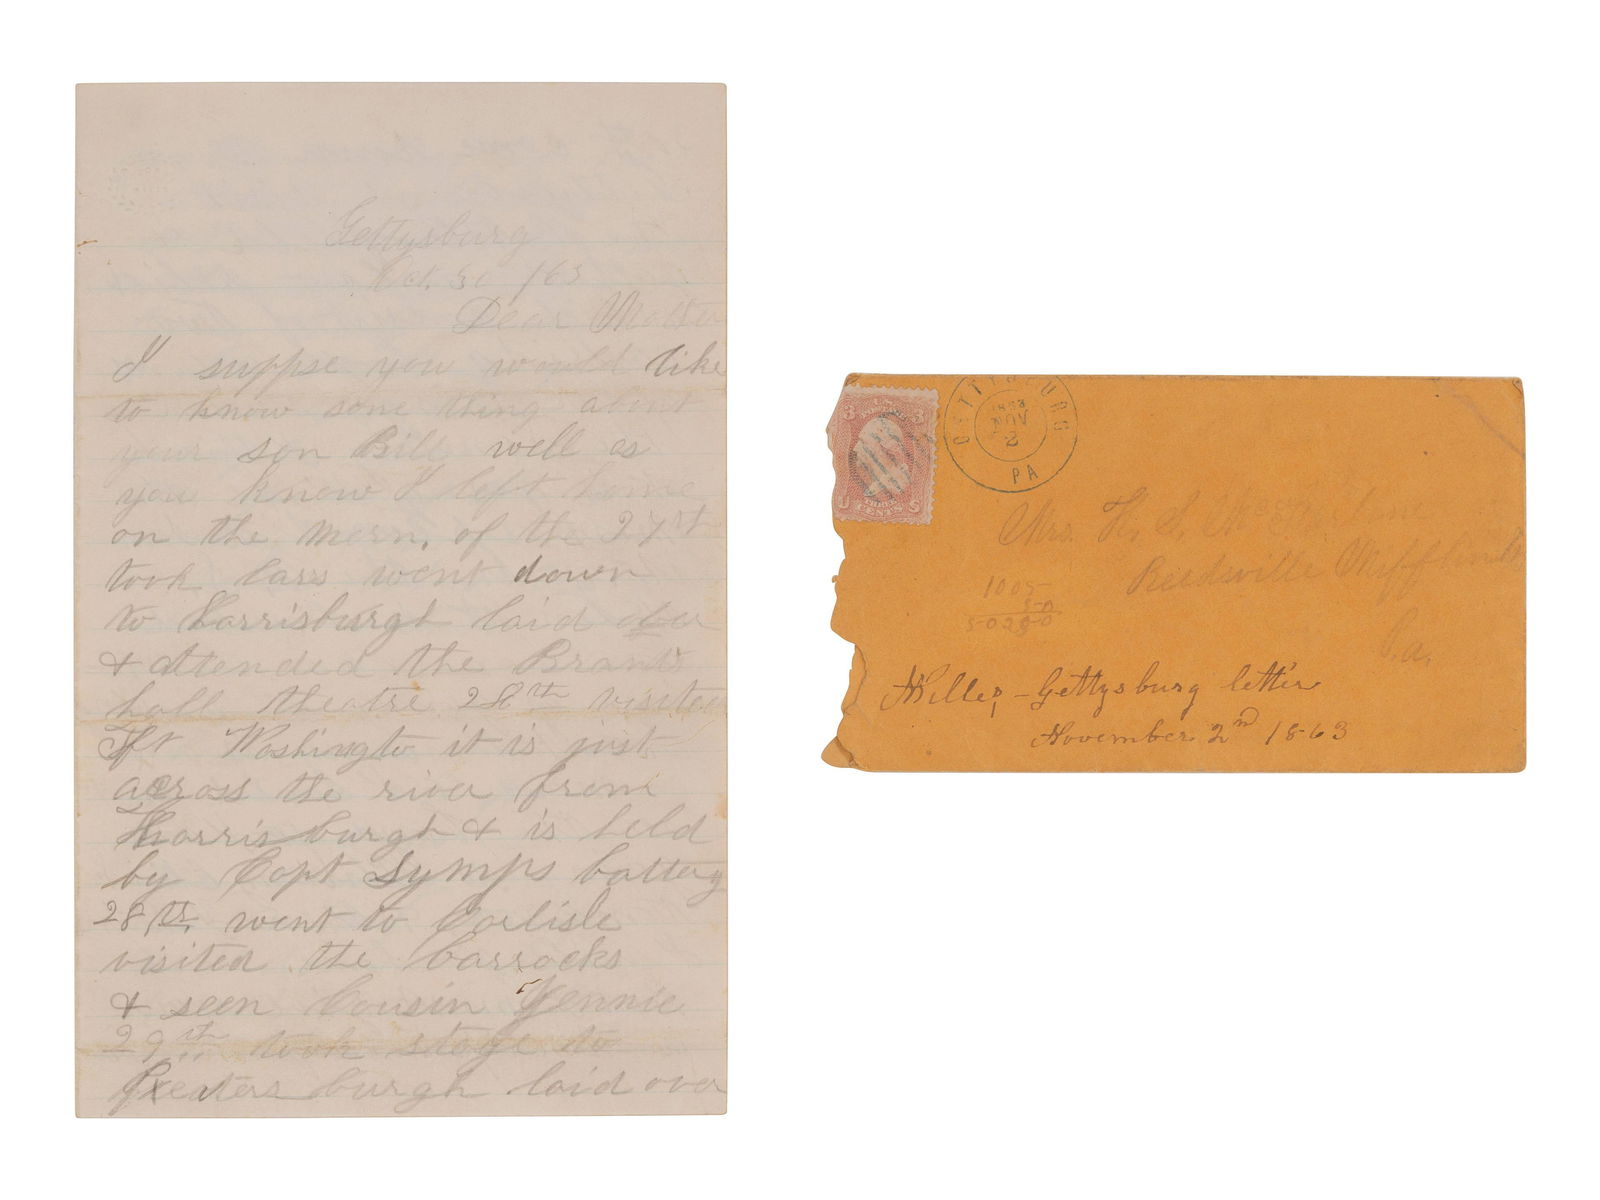 Gettysburg
Oct. 31 /63
Dear Mother
I suppse you would like
to know some thing about
your son Bill well as
you know I left home
on the morn. of the 27st
took cars went down
to Harrisburgh laid over
& attended the Brants
hall theatre 28th visited
Ft Washington it is just
across the river from
Harrisburgh & is held
by Capt Symps battery
28th went to Carlisle
visited the barrocks
& seen Cousin Jennie
29th took stage to
Peatersburgh laid over
3 3
U S
CENTS
GETTYSBURG
2
PA
Mrs. H. S.
Reedsville Mifflin
Pa.
1005
50
Gettysburg letter
November 2nd 1863